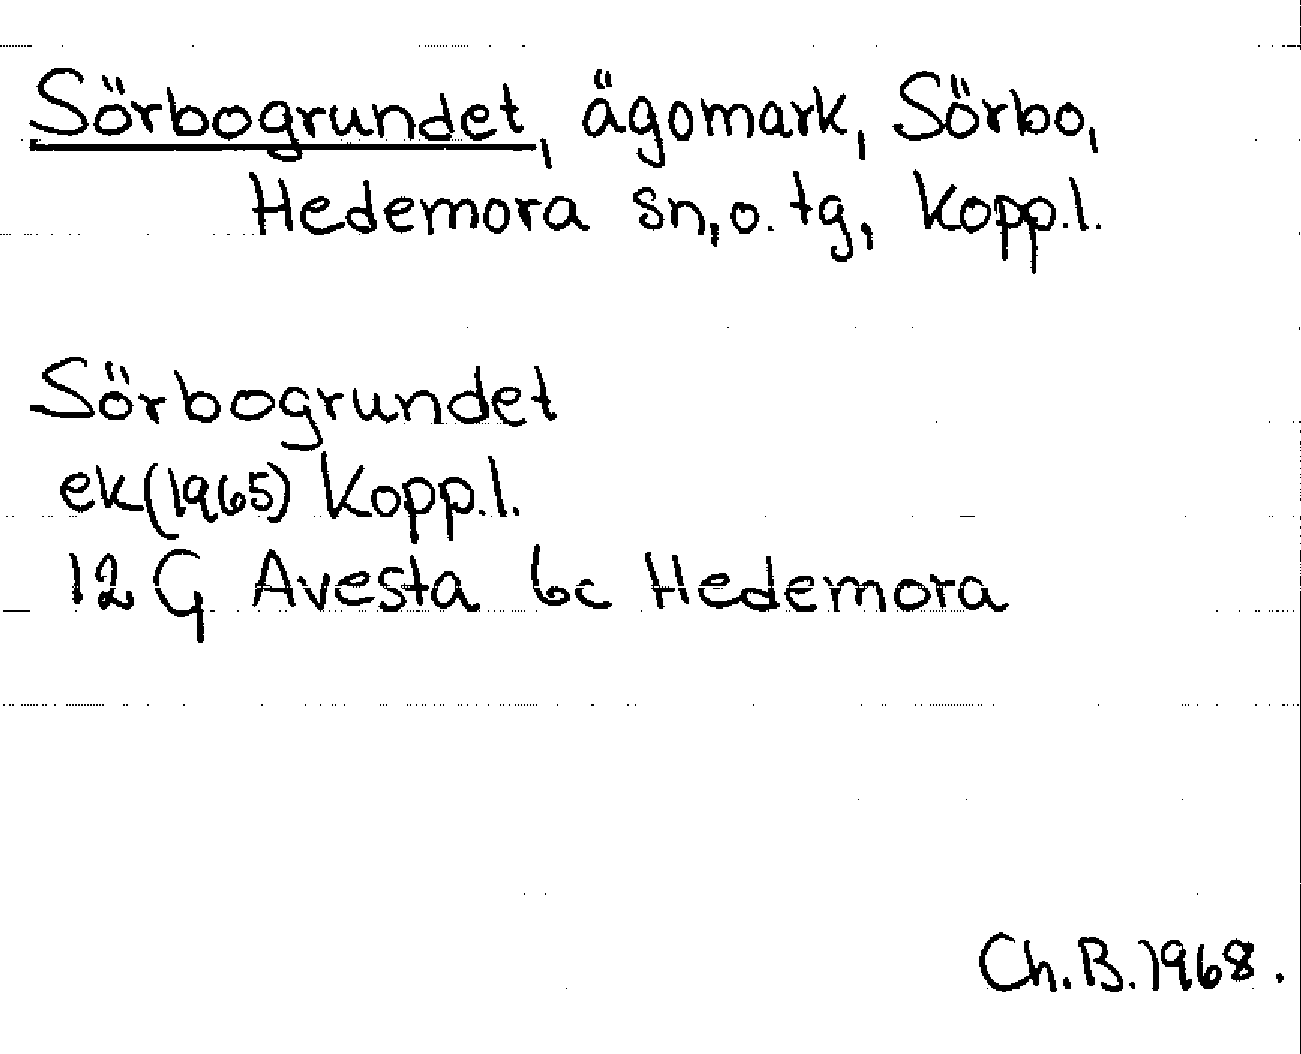 Sörbogrundet, ägomark, Sörbo,
Hedemora sn, o. tg, Kopp.l.
Sörbogrundet
ek (1965) Kopp.l.
12 G Avesta 6c Hedemora
Ch.B. 1968.